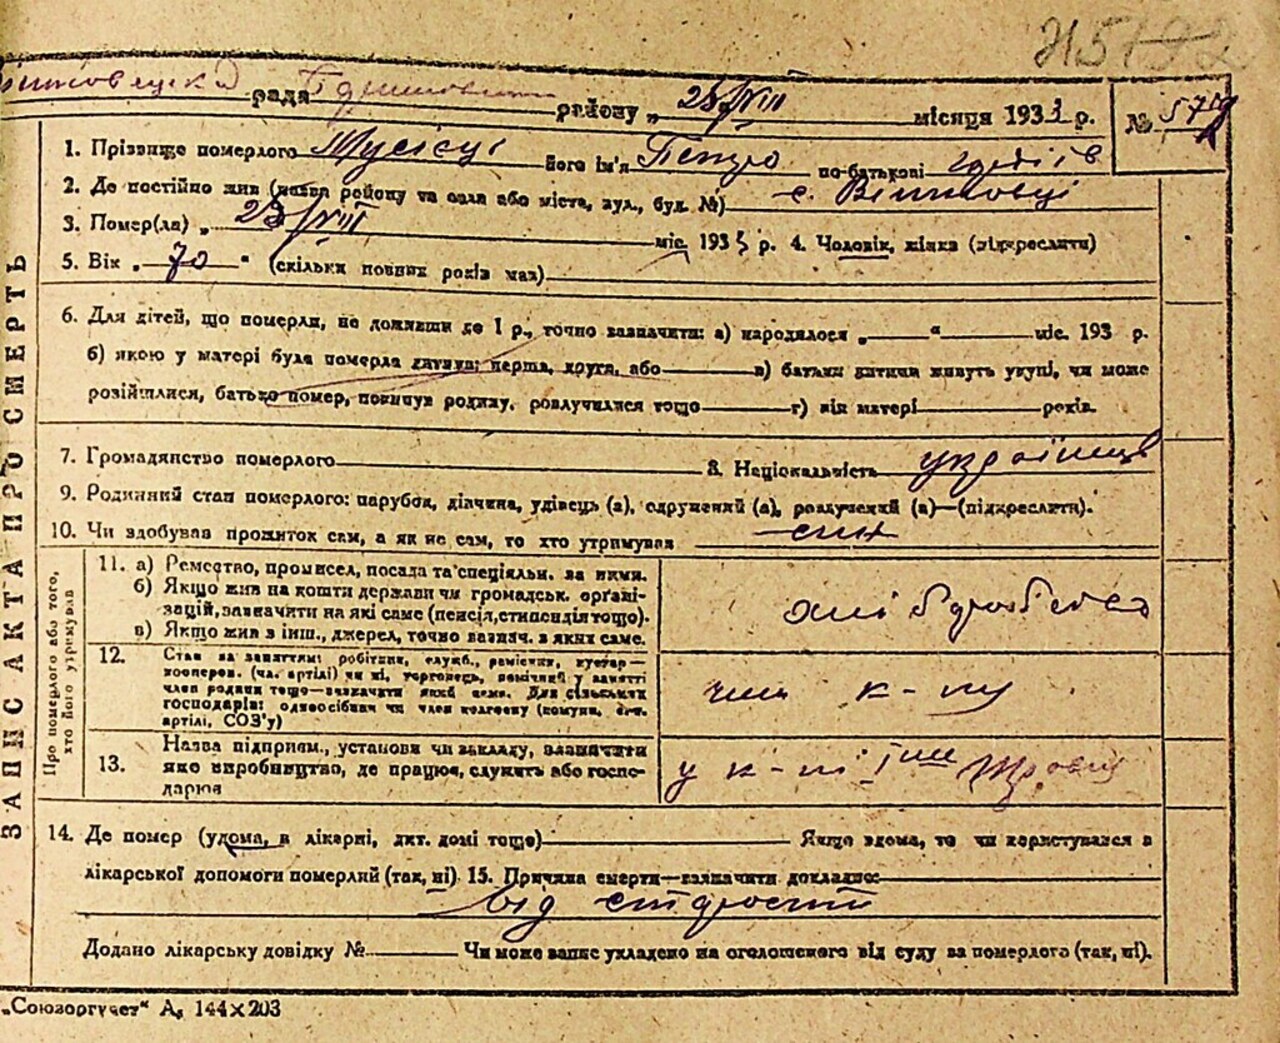 рада району „ 23/VIII місяця 1933 р. № 57
1. Прізвище померлого Його ім'я Петро по-батькові
2. Де постійно жив (назва району та села або міста, вул., буд. №) с. Вітковці
3. Помер(ла) „ 23/VIII міс. 1933 р. 4. Чоловік, жінка (підкреслити)
5. Вік „ 70 “ (скільки повних років мав)
6. Для дітей, що померли, не доживши до 1 р., точно зазначити: а) народилося „ “ міс. 193 р.
б) якою у матері була померла дитина: перша, друга, або в) батьки дитини живуть укупі, чи може
розійшлися, батько помер, покинув родину, розлучилися тощо г) вік матері років.
7. Громадянство померлого 8. Національність українець
9. Родинний стан померлого: парубок, дівчина, удівець (а), одружений (а), розлучений (а)—(підкреслити).
10. Чи здобував прожиток сам, а як не сам, то хто утримував син
ЗАПИС АКТА ПРО СМЕРТЬ
Про померлого або того, хто його утримував
11. а) Ремество, промисел, посада та спеціяльн. за ними.
б) Якщо жив на кошти держави чи громадськ. органі-
зацій, зазначити на які саме (пенсія, стипендія тощо).
в) Якщо жив з інш., джерел, точно зазнач. з яких саме.
хліборобство
12. Стан за заняттям: робітник, служб., ремісник, кустар—
кооперов. (чл. артілі) чи ні, торговець, помічний у занятті
член родини тощо—зазначити який саме. Для сільських
господарів: одноосібник чи член колгоспу (комуни, с.-г.
артілі, СОЗ'у)
член к-пу
13. Назва підприєм., установи чи закладу, зазначити
яке виробництво, де працює, служить або госпо-
дарює
у к-пі
14. Де помер (удома, в лікарні, дит. домі тощо) Якщо вдома, то чи користувався з
лікарської допомоги померлий (так, ні) 15. Причина смерти—зазначити докладно:
від старости
Додано лікарську довідку № Чи може запис укладено на оголошеного від суду за померлого (так, ні).
„Союзоргучет“ А₅ 144×203